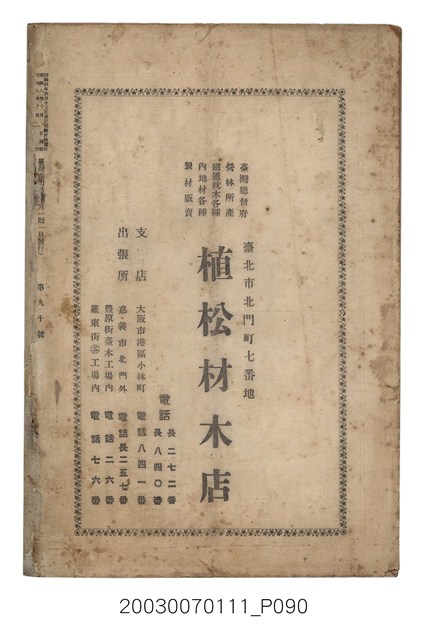 臺灣總督府
營林所產
鐵道枕木各種
內地材各種
製材販賣
臺北市北門町七番地
植松材木店
電話
長二七二番
長八四〇番
支店
大阪市港區小林町
電話八四一番
出張所
嘉義市北門外
電話長二五七番
豐原街臺木工場內
電話二六番
羅東街㊂工場內
電話七六番
第九十號
20030070111_P090